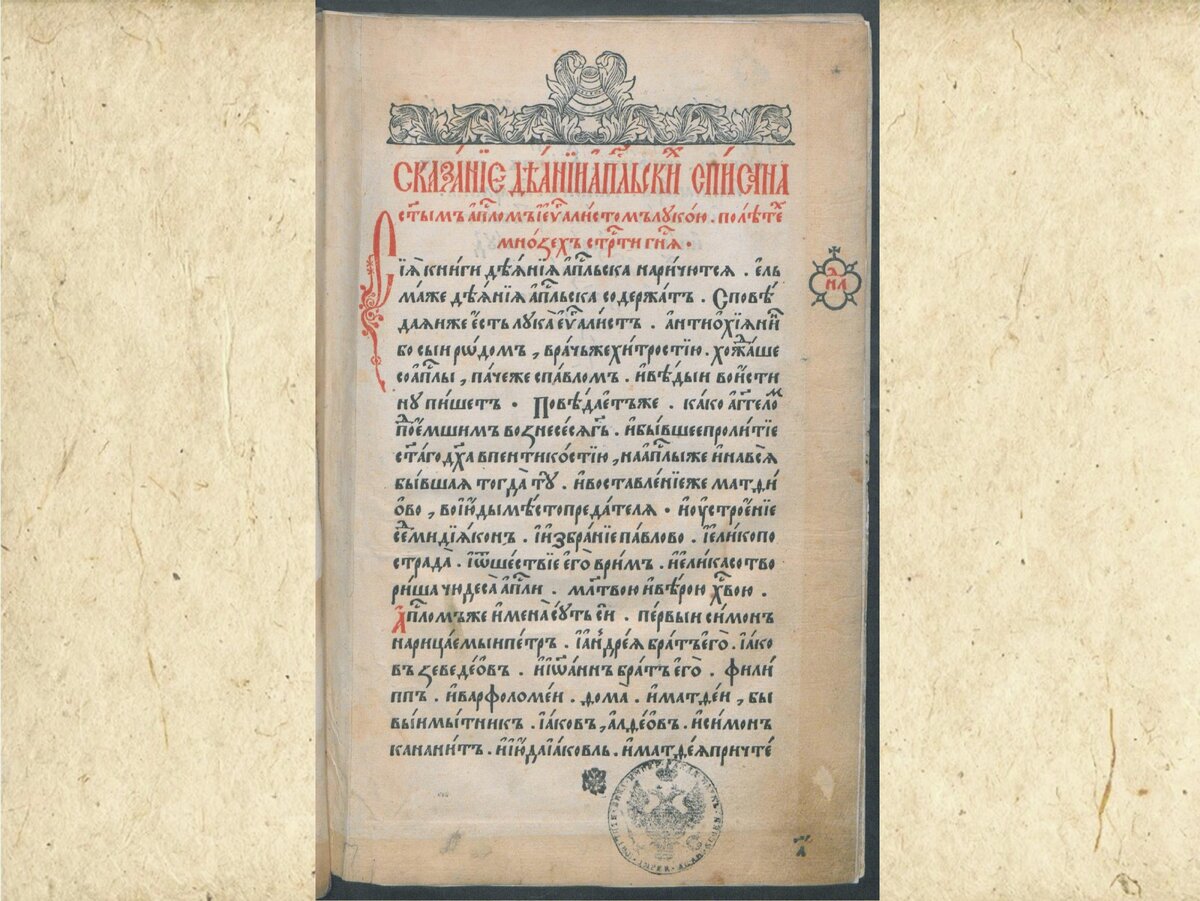 СКАЗА́НЇЕ ДѢѦ́НЇИ А҆Пⷭ҇ЛЬСКИⷯ СПИ́САНА
ст҃ы́мъ а҆пⷭ҇ломъ и҆ є҆ѵⷢ҇али́стомъ луко́ю . по лѣ́теⷯ
мно́ѕехъ стрⷭ҇ти гнⷭ҇ѧ .
Сїѧ̀ кни́ги дѣѧ́нїѧ а҆пⷭ҇льска нарича́ютсѧ . є҆ль
ма́же дѣѧ́нїѧ а҆пⷭ҇льска содержа́тъ . Сповѣ́
даѧи же є҆́сть лука̀ є҆ѵⷢ҇али́стъ . а҆нтиѻхїѧни́
бо сыи ро́домъ , вра́чь же хи́тростїю . хожⷣа́ше
со а҆пⷭ҇лы , па́че же спа́вломъ . и҆ вѣ́дыи вои́сти
ну пи́шетъ . Повѣ́даетъ же . ка́ко а҆́гг҃ело ⷨ
поⷣе́мшимъ вознесе́сѧ гⷭ҇ь . и҆ бы́вшее проли́тїе
ст҃а́го дх҃а впентико́стїю , на а҆пⷭ҇лы же и҆ на всѧ̀
бы́вшаѧ тогда̀ тꙋ̀ . и҆ воставле́нїе же матѳи́
ѻво , во і҆ю́ды мѣ́сто преда́телѧ . и҆ ѹ҆строе́нїе
се́ми дїѧ́конъ . и҆ и҆збра́нїе па́влово . и҆ є҆ли́ко по
страда̀ . и҆ ѿше́ствїе є҆го̀ в ри́мъ . и҆ є҆ли́ка сотво
ри́ша чидеса̀ а҆пⷭ҇ли . мл҃твою и҆ вѣ́рою хв҃ою .
А҆пⷭ҇ломъ же и҆мена̀ сꙋ́ть сїѝ . пе́рвыи си́монъ
нарица́емыи пе́тръ . и҆ а҆ндре́ѧ бра́тъ є҆го̀ . і҆а́ко
въ зеведе́ѻвъ . и҆ і҆ѡа́ннъ бра́тъ є҆го̀ . фили́
ппъ . и҆ варфоломе́и . ѳома̀ . и҆ матѳе́и , бы
вы́и мы́тникъ . і҆а́ковъ , а҆лѳе́ѻвъ . и҆ си́монъ
канани́тъ . и҆ і҆ю́да і҆а́ковль . и҆ матѳе́ѧ причте́